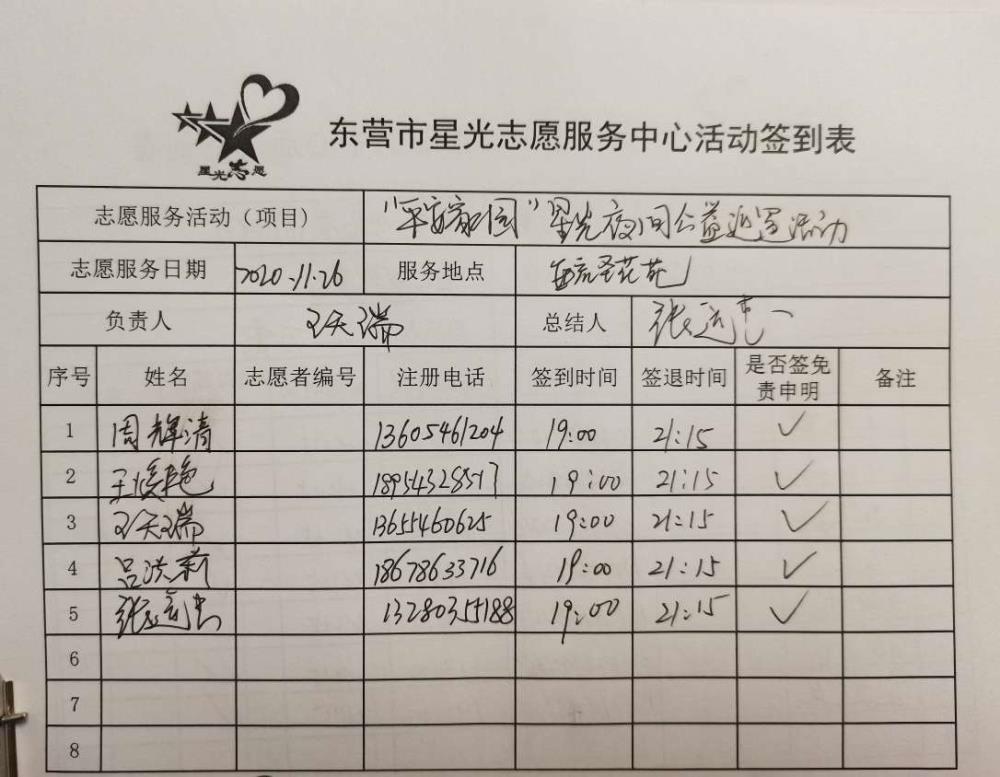 星光志愿
东营市星光志愿服务中心活动签到表
志愿服务活动（项目） “平安家园”星光夜间公益巡逻活动
志愿服务日期 2020.11.26 服务地点 花苑
负责人 王天瑞 总结人 张远忠
序号 姓名 志愿者编号 注册电话 签到时间 签退时间 是否签免责申明 备注
1 周辉清 13605461204 19:00 21:15 ✓
2 王 艳 18954328517 19:00 21:15 ✓
3 王天瑞 13655460625 19:00 21:15 ✓
4 吕洪莉 18678633716 19:00 21:15 ✓
5 张远忠 13280355188 19:00 21:15 ✓
6
7
8